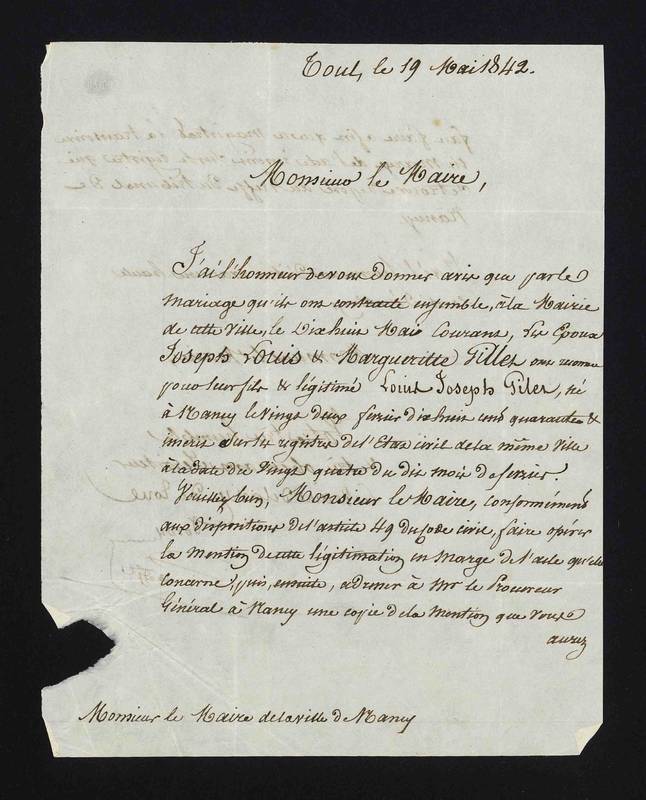 Toul, le 19 Mai 1842.
Monsieur le Maire,
J'ai l'honneur de vous donner avis que par le
mariage qu'ils ont contracté ensemble, à la Mairie
de cette ville, le Dix huit Mai Courant, les Epoux
Joseph Louis & Margueritte Gillet ont reconnu
pour leur fils & légitimé Louis Joseph Gilet, né
à Nancy le vingt deux fevrier dix huit cent quarante &
inscrit sur les registres de l'Etat civil de la même ville
à la date du vingt quatre du dit mois de fevrier.
Veuillez bien, Monsieur le Maire, conformément
aux dispositions de l'article 49 du Code civil, faire opérer
la mention de cette légitimation en marge de l'acte qu'elle
concerne, puis, ensuite, adresser à Mr le Procureur
Général à Nancy une copie de la mention que vous
aurez
Monsieur le Maire de la ville de Nancy